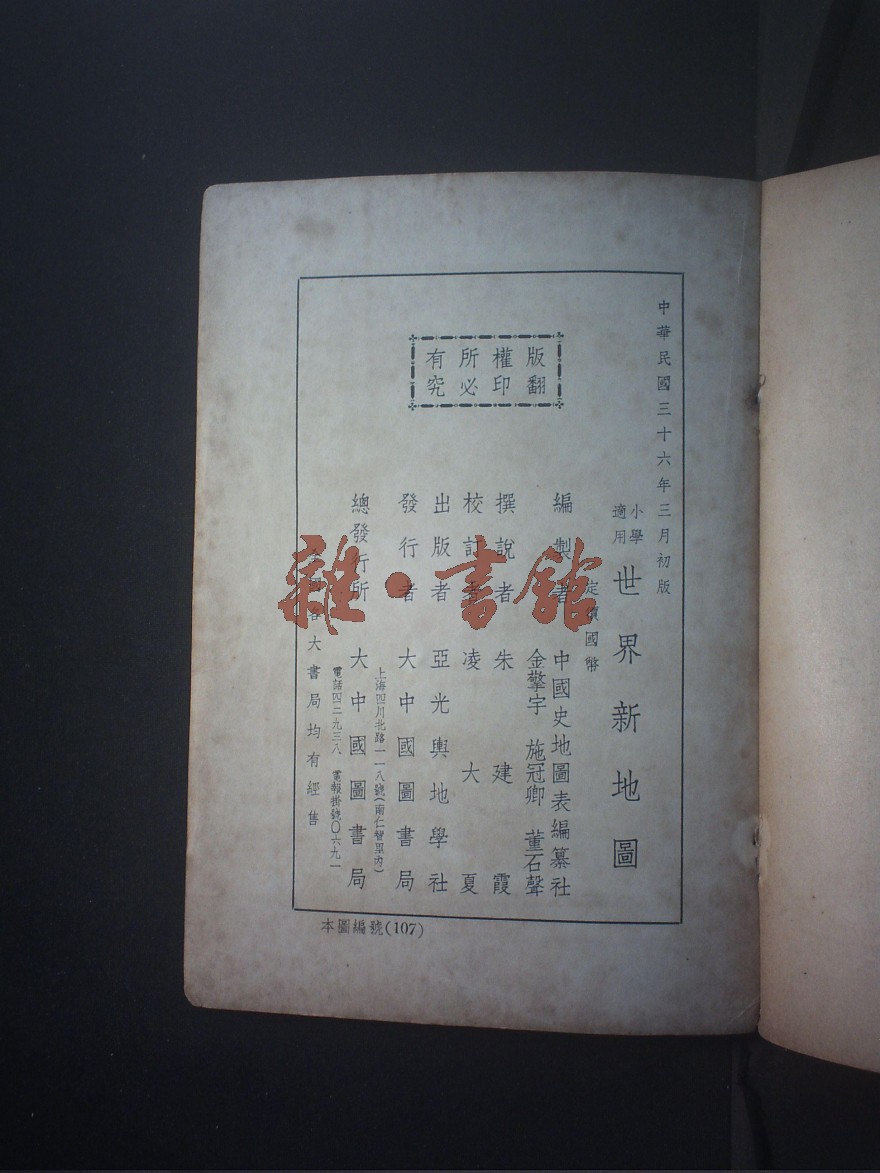 中華民國三十六年三月初版
小學適用
世界新地圖
定價國幣
版權所有
翻印必究
編製者 中國史地圖表編纂社
金擎宇 施冠卿 董石聲
撰說者 朱建霞
校訂者 凌大夏
出版者 亞光輿地學社
發行者 大中國圖書局
上海四川北路一一八號(南仁智里內)
總發行所 大中國圖書局
電話四二九三八 電報掛號〇六九一
全國各大書局均有經售
本圖編號(107)
雜·書館